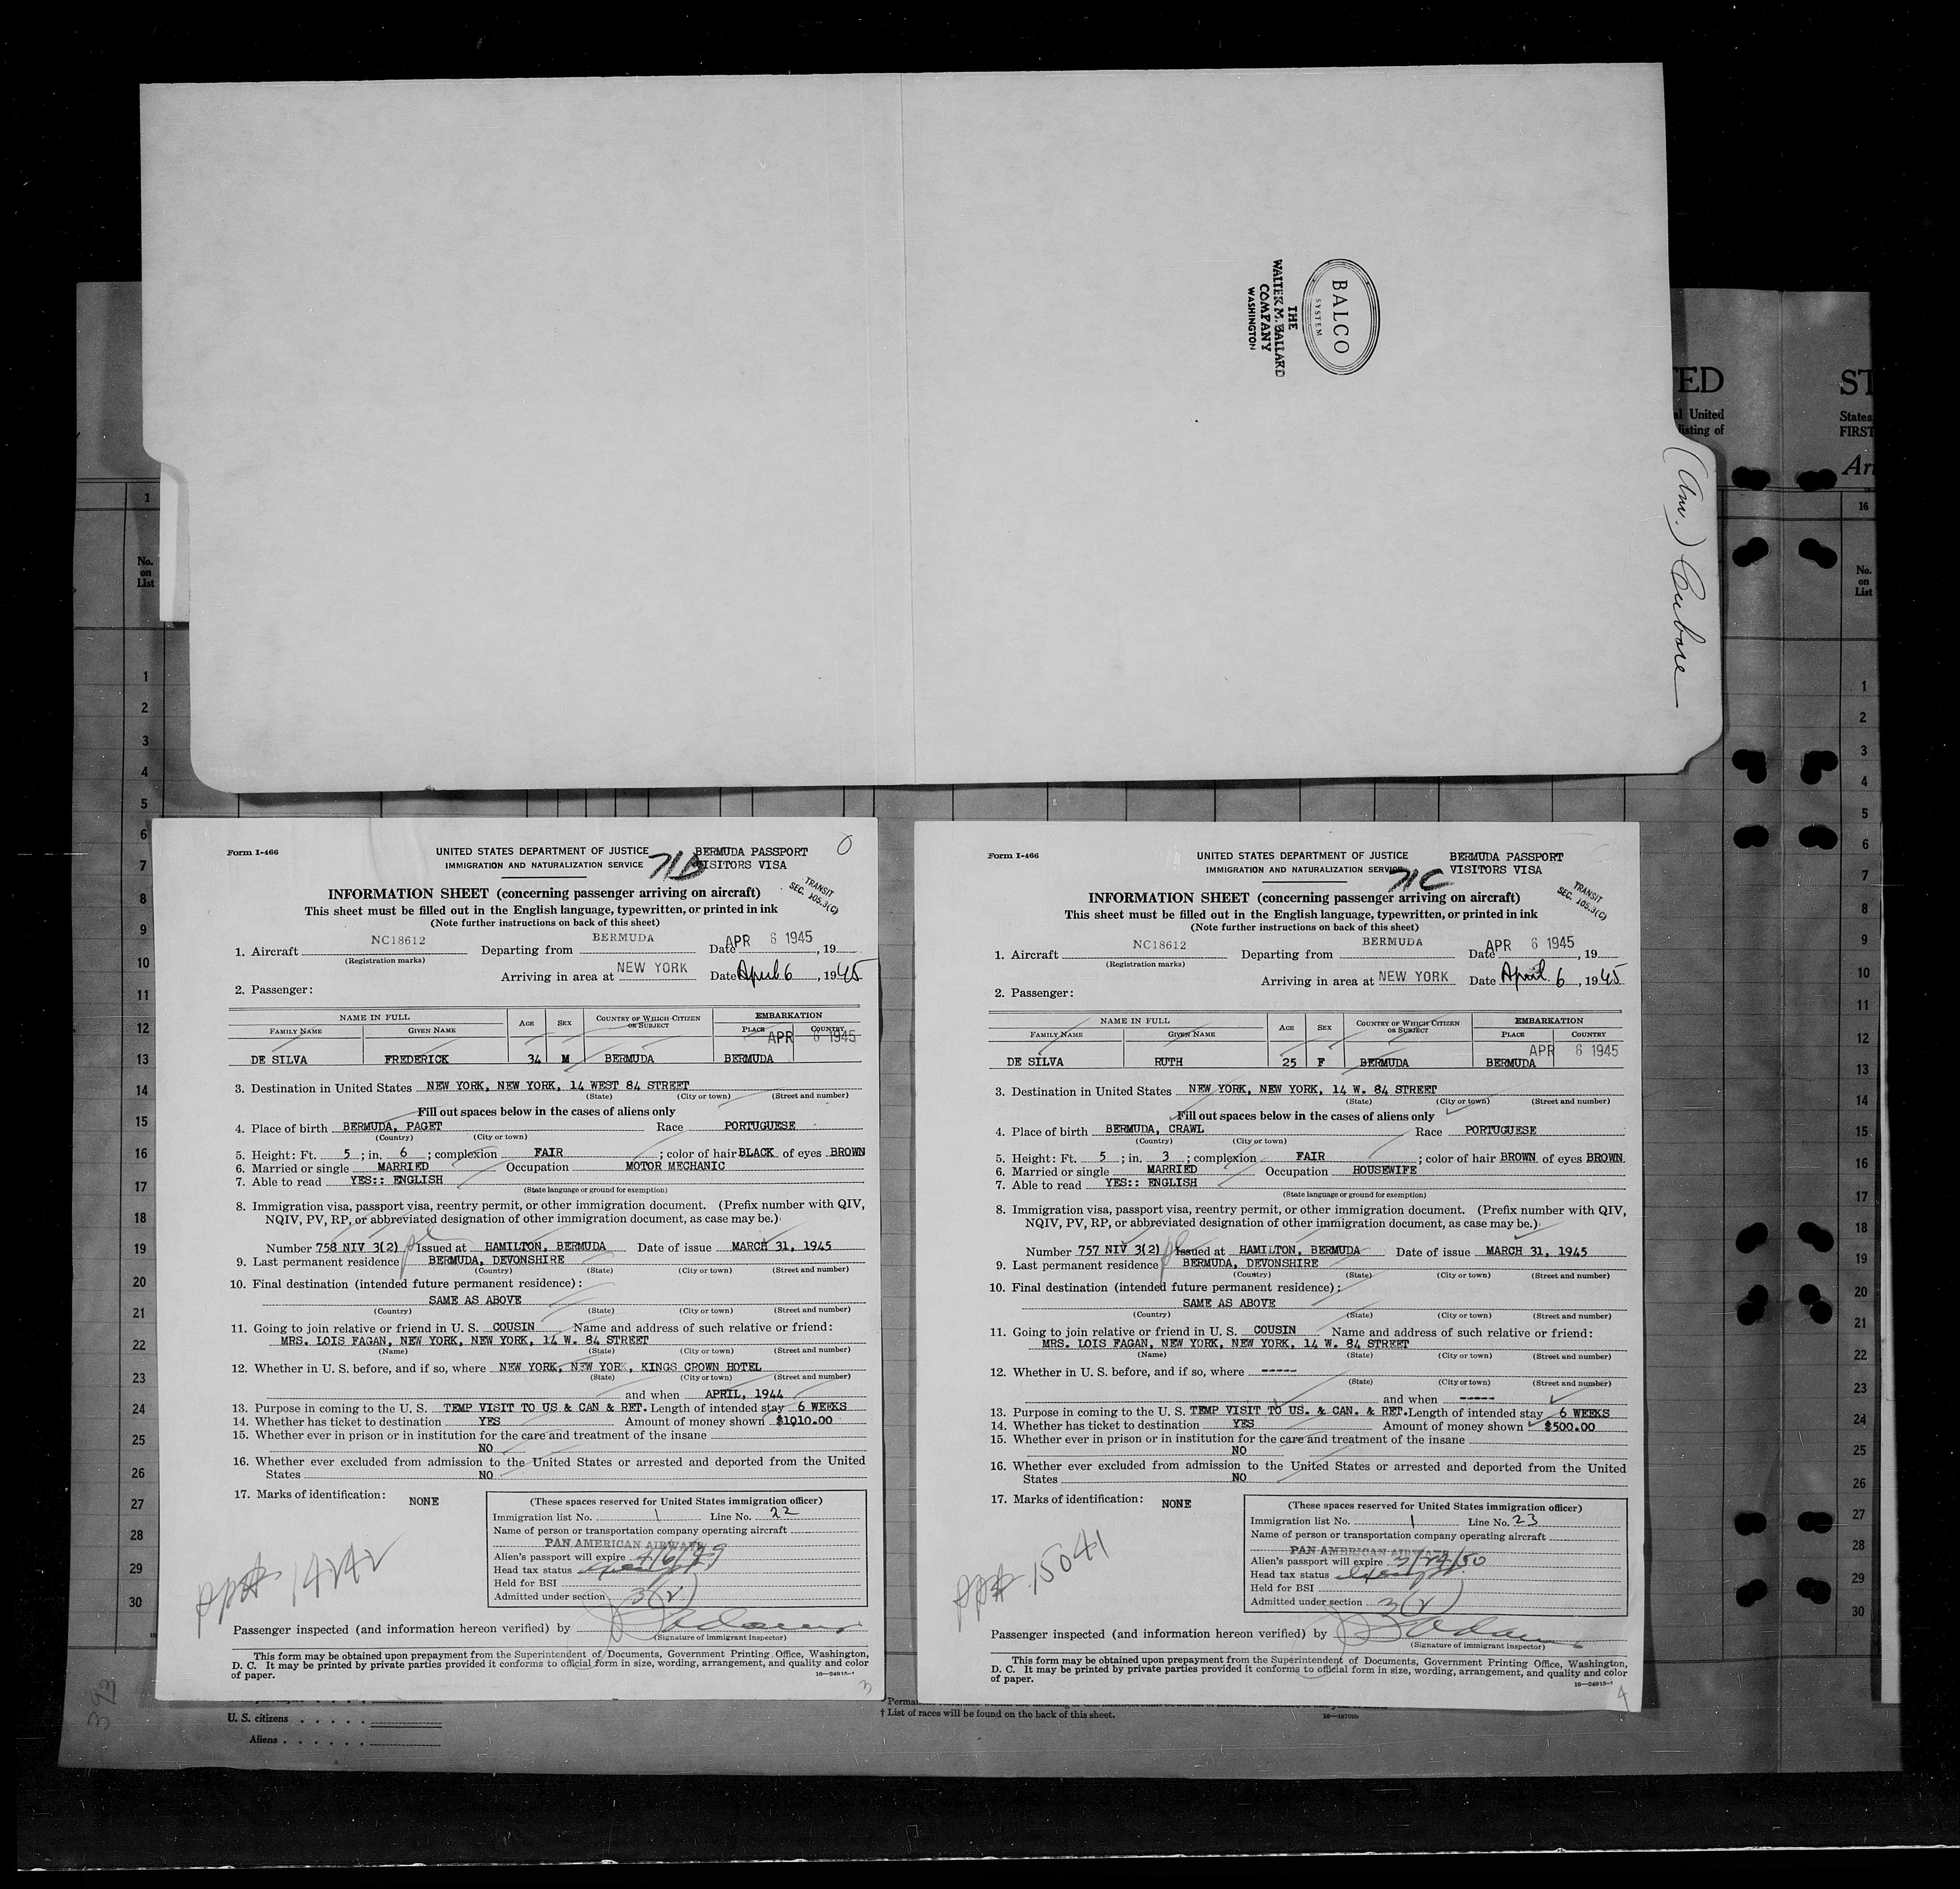 BALCO
SYSTEM
THE
WALTER M. BALLARD
COMPANY
WASHINGTON
TED
al United
listing of
ST
States
FIRST
Ar
1
16
No.
on
List
No.
on
List
Form I-466
UNITED STATES DEPARTMENT OF JUSTICE
IMMIGRATION AND NATURALIZATION SERVICE
BERMUDA PASSPORT
VISITORS VISA
71D
TRANSIT
SEC. 105.3(C)
INFORMATION SHEET (concerning passenger arriving on aircraft)
This sheet must be filled out in the English language, typewritten, or printed in ink
(Note further instructions on back of this sheet)
1. Aircraft NC18612 Departing from BERMUDA Date APR 6 1945, 19
(Registration marks)
Arriving in area at NEW YORK Date April 6, 1945
2. Passenger:
NAME IN FULL AGE SEX COUNTRY OF WHICH CITIZEN OR SUBJECT EMBARKATION
FAMILY NAME GIVEN NAME PLACE COUNTRY
APR 6 1945
DE SILVA FREDERICK 34 M BERMUDA BERMUDA
3. Destination in United States NEW YORK, NEW YORK, 14 WEST 84 STREET
(State) (City or town) (Street and number)
Fill out spaces below in the cases of aliens only
4. Place of birth BERMUDA, PAGET Race PORTUGUESE
(Country) (City or town)
5. Height: Ft. 5 ; in. 6 ; complexion FAIR ; color of hair BLACK of eyes BROWN
6. Married or single MARRIED Occupation MOTOR MECHANIC
7. Able to read YES:: ENGLISH
(State language or ground for exemption)
8. Immigration visa, passport visa, reentry permit, or other immigration document. (Prefix number with QIV,
NQIV, PV, RP, or abbreviated designation of other immigration document, as case may be.)
Number 758 NIV 3(2) Issued at HAMILTON, BERMUDA Date of issue MARCH 31, 1945
9. Last permanent residence BERMUDA, DEVONSHIRE
(Country) (State) (City or town) (Street and number)
10. Final destination (intended future permanent residence):
SAME AS ABOVE
(Country) (State) (City or town) (Street and number)
11. Going to join relative or friend in U. S. COUSIN Name and address of such relative or friend:
MRS. LOIS FAGAN, NEW YORK, NEW YORK, 14 W. 84 STREET
(Name) (State) (City or town) (Street and number)
12. Whether in U. S. before, and if so, where NEW YORK, NEW YORK, KINGS CROWN HOTEL
(State) (City or town) (Street and number)
and when APRIL, 1944
13. Purpose in coming to the U. S. TEMP VISIT TO US & CAN & RET. Length of intended stay 6 WEEKS
14. Whether has ticket to destination YES Amount of money shown $1010.00
15. Whether ever in prison or in institution for the care and treatment of the insane
NO
16. Whether ever excluded from admission to the United States or arrested and deported from the United
States NO
17. Marks of identification: NONE
(These spaces reserved for United States immigration officer)
Immigration list No. 1 Line No. 22
Name of person or transportation company operating aircraft
PAN AMERICAN AIRWAYS
Alien's passport will expire 4/6/49
Head tax status
Held for BSI
Admitted under section 3(2)
Passenger inspected (and information hereon verified) by
(Signature of immigrant inspector)
This form may be obtained upon prepayment from the Superintendent of Documents, Government Printing Office, Washington,
D. C. It may be printed by private parties provided it conforms to official form in size, wording, arrangement, and quality and color
of paper.
16—24915-1
3
Form I-466
UNITED STATES DEPARTMENT OF JUSTICE
IMMIGRATION AND NATURALIZATION SERVICE
BERMUDA PASSPORT
VISITORS VISA
71C
TRANSIT
SEC. 105.3(C)
INFORMATION SHEET (concerning passenger arriving on aircraft)
This sheet must be filled out in the English language, typewritten, or printed in ink
(Note further instructions on back of this sheet)
1. Aircraft NC18612 Departing from BERMUDA Date APR 6 1945, 19
(Registration marks)
Arriving in area at NEW YORK Date April 6, 1945
2. Passenger:
NAME IN FULL AGE SEX COUNTRY OF WHICH CITIZEN OR SUBJECT EMBARKATION
FAMILY NAME GIVEN NAME PLACE COUNTRY
APR 6 1945
DE SILVA RUTH 25 F BERMUDA BERMUDA
3. Destination in United States NEW YORK, NEW YORK, 14 W. 84 STREET
(State) (City or town) (Street and number)
Fill out spaces below in the cases of aliens only
4. Place of birth BERMUDA, CRAWL Race PORTUGUESE
(Country) (City or town)
5. Height: Ft. 5 ; in. 3 ; complexion FAIR ; color of hair BROWN of eyes BROWN
6. Married or single MARRIED Occupation HOUSEWIFE
7. Able to read YES:: ENGLISH
(State language or ground for exemption)
8. Immigration visa, passport visa, reentry permit, or other immigration document. (Prefix number with QIV,
NQIV, PV, RP, or abbreviated designation of other immigration document, as case may be.)
Number 757 NIV 3(2) Issued at HAMILTON, BERMUDA Date of issue MARCH 31, 1945
9. Last permanent residence BERMUDA, DEVONSHIRE
(Country) (State) (City or town) (Street and number)
10. Final destination (intended future permanent residence):
SAME AS ABOVE
(Country) (State) (City or town) (Street and number)
11. Going to join relative or friend in U. S. COUSIN Name and address of such relative or friend:
MRS. LOIS FAGAN, NEW YORK, NEW YORK, 14 W. 84 STREET
(Name) (State) (City or town) (Street and number)
12. Whether in U. S. before, and if so, where -----
(State) (City or town) (Street and number)
and when -----
13. Purpose in coming to the U. S. TEMP VISIT TO US. & CAN. & RET. Length of intended stay 6 WEEKS
14. Whether has ticket to destination YES Amount of money shown $500.00
15. Whether ever in prison or in institution for the care and treatment of the insane
NO
16. Whether ever excluded from admission to the United States or arrested and deported from the United
States NO
17. Marks of identification: NONE
15041
(These spaces reserved for United States immigration officer)
Immigration list No. 1 Line No. 23
Name of person or transportation company operating aircraft
PAN AMERICAN AIRWAYS
Alien's passport will expire 3/24/50
Head tax status
Held for BSI
Admitted under section 3(2)
Passenger inspected (and information hereon verified) by
(Signature of immigrant inspector)
This form may be obtained upon prepayment from the Superintendent of Documents, Government Printing Office, Washington,
D. C. It may be printed by private parties provided it conforms to official form in size, wording, arrangement, and quality and color
of paper.
16—24915-1
4
393
U. S. citizens
Aliens
† List of races will be found on the back of this sheet.